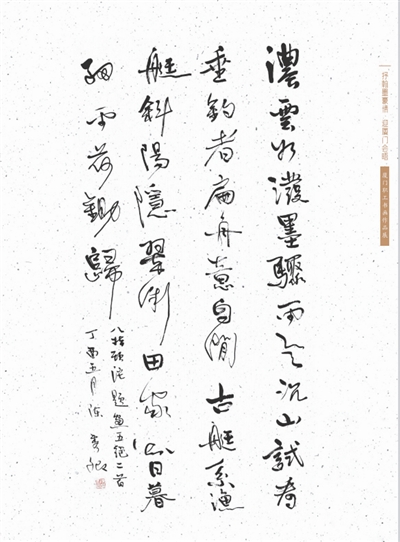 濃雲如潑墨驟雨忽沉山試看
垂釣者扁舟意自閒古艇系漁
艇斜陽隱翠微田家日暮
細雨荷鋤歸
八指頭陀題畫五絕二首
丁酉五月陳秀
抒翰墨豪情 迎厦门会晤
厦门职工书画作品展